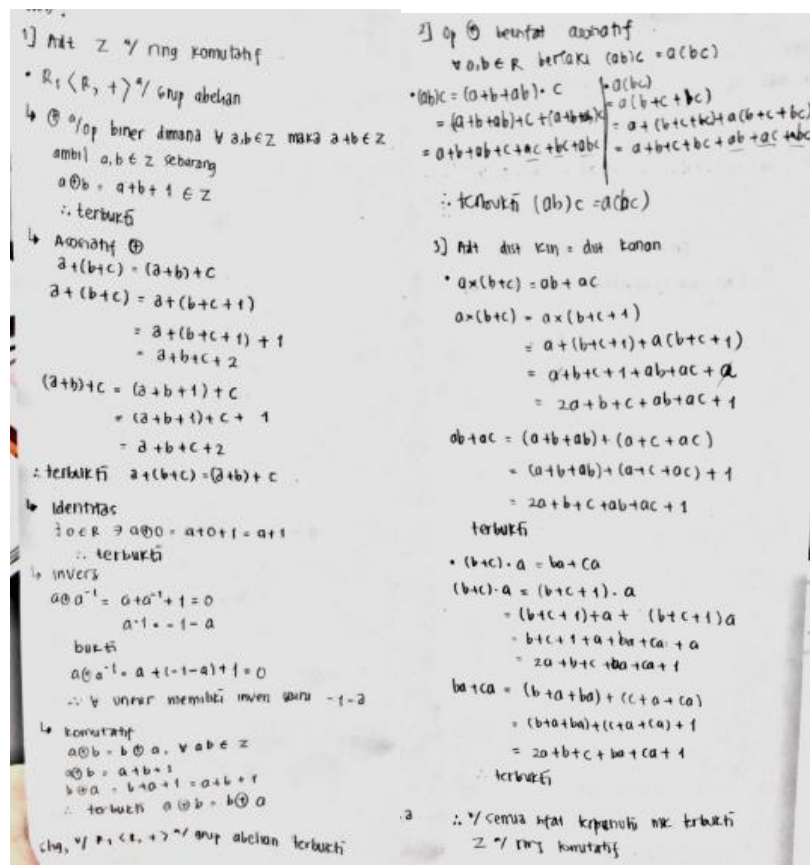 1] Adt Z a/ ring komutatif
• R, <R, +> a/ Grup abelian
↳ ⊕ a/ op biner dimana ∀ a,b ∈ Z maka a+b ∈ Z
ambil a,b ∈ Z sebarang
a⊕b = a+b+1 ∈ Z
∴ terbukti
↳ Asosiatif ⊕
a+(b+c) = (a+b)+c
a+(b+c) = a+(b+c+1)
= a+(b+c+1)+1
= a+b+c+2
(a+b)+c = (a+b+1)+c
= (a+b+1)+c+1
= a+b+c+2
∴ terbukti a+(b+c)=(a+b)+c
↳ Identitas
∃ 0∈R ∋ a⊕0 = a+0+1 = a+1
∴ terbukti
↳ invers
a⊕a⁻¹ = a+a⁻¹+1 = 0
a⁻¹ = -1-a
bukti
a⊕a⁻¹ = a+(-1-a)+1 = 0
∴ ∀ unsur memiliki invers -1-a
↳ komutatif
a⊕b = b⊕a, ∀ ab ∈ Z
a⊕b = a+b+1
b⊕a = b+a+1 = a+b+1
∴ terbukti a⊕b = b⊕a
<R, +> a/ grup abelian terbukti
2] op bersifat asosiatif
∀ a,b ∈ R berlaku (ab)c = a(bc)
• (ab)c = (a+b+ab)•c
= (a+b+ab)+c+(a+b+ab)c
= a+b+ab+c+ac+bc+abc
• a(bc)
= a(b+c+bc)
= a+(b+c+bc)+a(b+c+bc)
= a+b+c+bc+ab+ac+abc
∴ terbukti (ab)c = a(bc)
3] Adt dist kiri = dist kanan
• a×(b+c) = ab+ac
a×(b+c) = a×(b+c+1)
= a+(b+c+1)+a(b+c+1)
= a+b+c+1+ab+ac+a
= 2a+b+c+ab+ac+1
ab+ac = (a+b+ab)+(a+c+ac)
= (a+b+ab)+(a+c+ac)+1
= 2a+b+c+ab+ac+1
terbukti
• (b+c)•a = ba+ca
(b+c)•a = (b+c+1)•a
= (b+c+1)+a+(b+c+1)a
= b+c+1+a+ba+ca+a
= 2a+b+c+ba+ca+1
ba+ca = (b+a+ba)+(c+a+ca)
= (b+a+ba)+(c+a+ca)+1
= 2a+b+c+ba+ca+1
∴ terbukti
∴ semua sifat terpenuhi mk terbukti
Z a/ ring komutatif